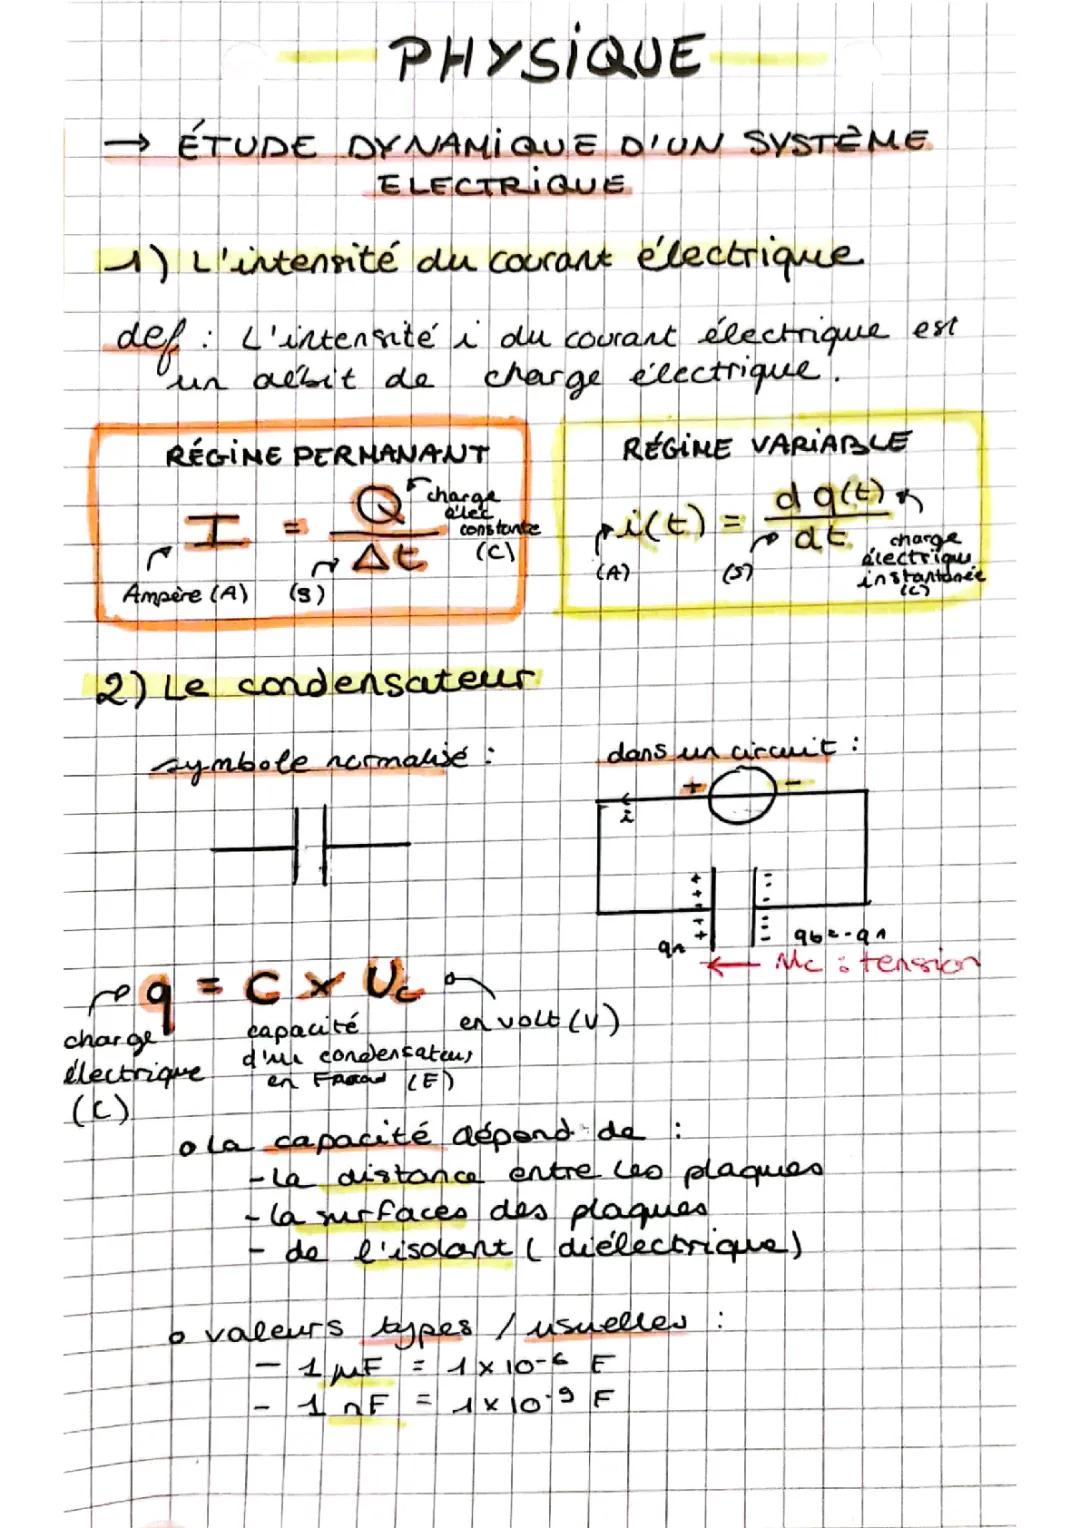 PHYSIQUE
→ ÉTUDE DYNAMIQUE D'UN SYSTÈME
ELECTRIQUE
1) L'intensité du courant électrique
def : L'intensité i du courant électrique est
un débit de charge électrique.
RÉGIME PERMANANT
I = Q / Δt
charge élec constante (C)
Ampère (A) (s)
RÉGIME VARIABLE
i(t) = d q(t) / dt
(A) (s) charge électrique instantanée (C)
2) Le condensateur
symbole normalisé :
dans un circuit :
+ -
i
qA qB=-qA
← Uc : tension
q = C × Uc
charge électrique (C)
capacité d'un condensateur en Farad (F)
en volt (V)
o La capacité dépend de :
- La distance entre les plaques
- la surfaces des plaques
- de l'isolant (diélectrique)
o valeurs types / usuelles :
- 1 µF = 1×10-6 F
- 1 nF = 1×10-9 F